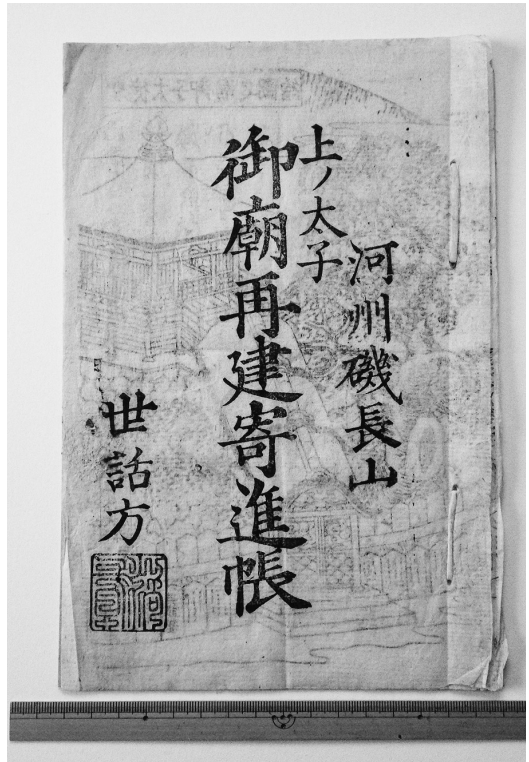 河州磯長山
上ノ太子
御廟再建寄進帳
世話方